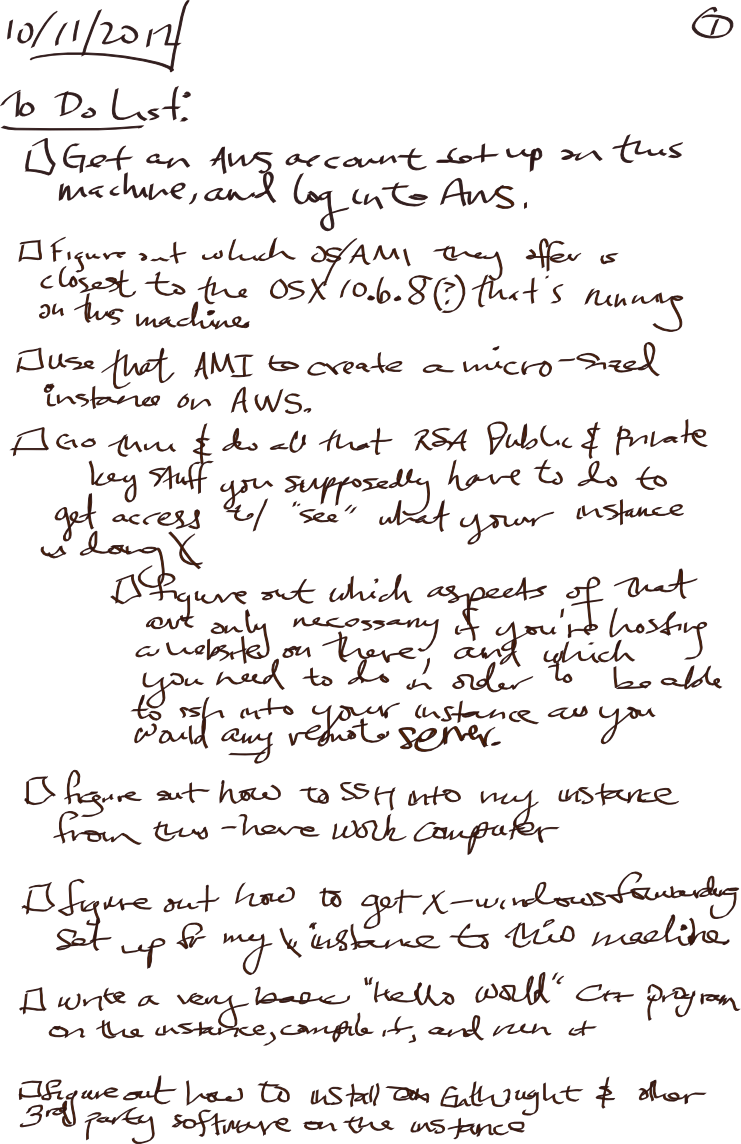 10/11/2012
1
To Do List:
Get an AWS account set up on this
machine, and log into AWS.
Figure out which OS/AMI they offer is
closest to the OSX 10.6.8(?) that's running
on this machine
use that AMI to create a micro-sized
instance on AWS.
Go thru & do all that RSA Public & Private
key stuff you supposedly have to do to
get access to/ "see" what your instance
is doing
figure out which aspects of that
are only necessary if you're hosting
a website on there, and which
you need to do in order to be able
to ssh into your instance as you
would any remote server.
figure out how to SSH into my instance
from this-here work computer
figure out how to get X-windows forwarding
set up fr my instance to this machine
write a very basic "Hello World" C++ program
on the instance, compile it, and run it
figure out how to install Enthought & other
3rd party software on the instance